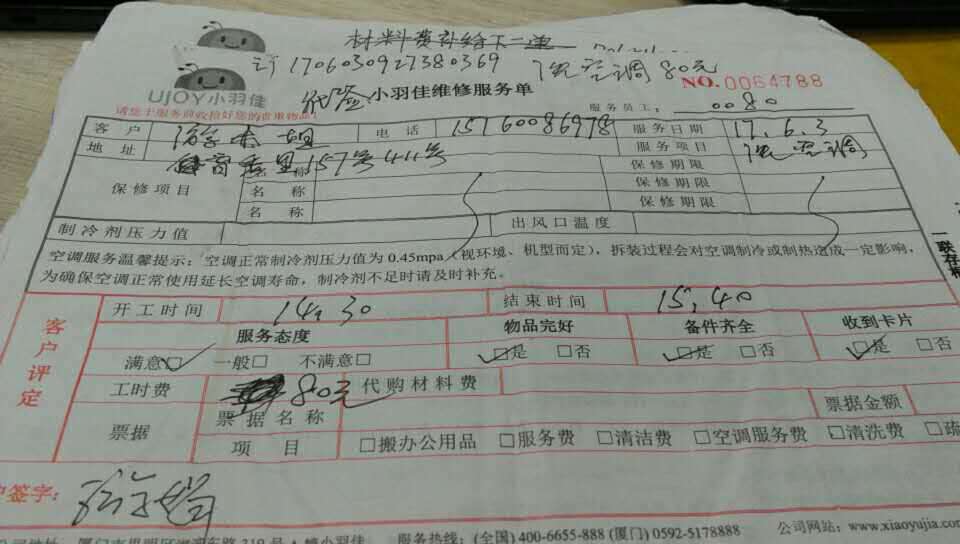 材料费补给下一速
170603092738036​9 洗空调80元
NO.0064788
UJOY小羽佳
代签 小羽佳维修服务单
请您于服务前收捡好您的贵重物品!
服务员工: 0080
客户 电话 15760086978 服务日期 17.6.3
地址 157号411号 服务项目 洗空调
保修项目 名称 保修期限
名称 保修期限
名称 保修期限
制冷剂压力值 出风口温度
空调服务温馨提示:空调正常制冷剂压力值为0.45mpa(视环境、机型而定),拆装过程会对空调制冷或制热造成一定影响,
为确保空调正常使用延长空调寿命,制冷剂不足时请及时补充。
客户评定
开工时间 14.30 结束时间 15.40
服务态度 物品完好 备件齐全 收到卡片
满意□ 一般□ 不满意□ □是 □否 □是 □否 □是 □否
工时费 80元 代购材料费
票据 票据名称 票据金额
项目 □搬办公用品 □服务费 □清洁费 □空调服务费 □清洗费 □疏
户签字:
服务热线:(全国)400-6655-888 (厦门) 0592-5178888 公司网站:www.xiaoyujia.com